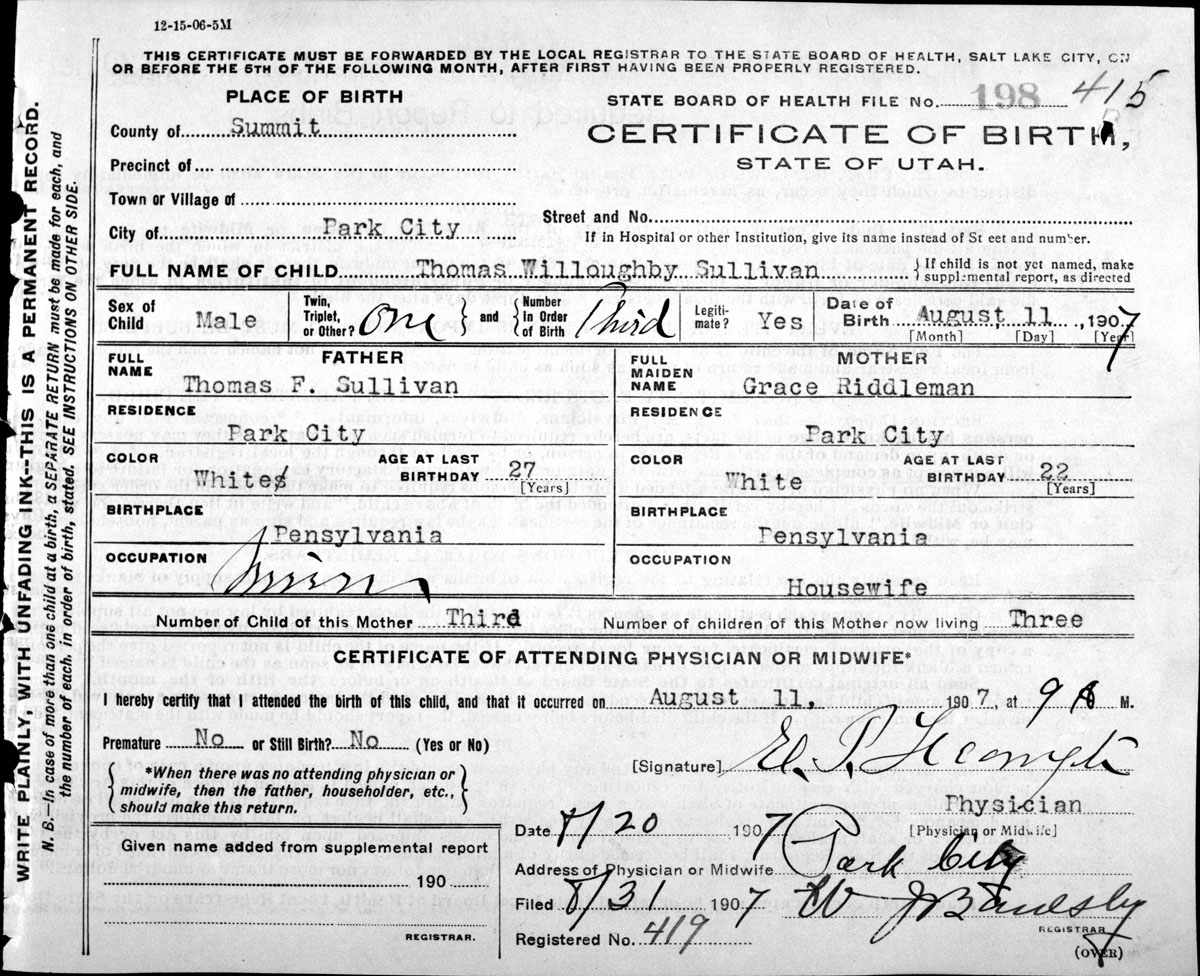 12-15-06-5M
THIS CERTIFICATE MUST BE FORWARDED BY THE LOCAL REGISTRAR TO THE STATE BOARD OF HEALTH, SALT LAKE CITY, ON
OR BEFORE THE 5TH OF THE FOLLOWING MONTH, AFTER FIRST HAVING BEEN PROPERLY REGISTERED.
WRITE PLAINLY, WITH UNFADING INK-THIS IS A PERMANENT RECORD.
N. B.—In case of more than one child at a birth, a SEPARATE RETURN must be made for each, and
the number of each, in order of birth, stated. SEE INSTRUCTIONS ON OTHER SIDE.
PLACE OF BIRTH
County of Summit
Precinct of
Town or Village of
City of Park City
STATE BOARD OF HEALTH FILE No. 198 415
CERTIFICATE OF BIRTH,
STATE OF UTAH.
Street and No.
If in Hospital or other Institution, give its name instead of St eet and number.
FULL NAME OF CHILD Thomas Willoughby Sullivan { If child is not yet named, make
supplemental report, as directed
Sex of Child Male Twin, Triplet, or Other? One } and { Number in Order of Birth Third Legiti- mate? Yes Date of Birth August 11, 1907
[Month] [Day] [Year]
FATHER
FULL NAME
Thomas F. Sullivan
RESIDENCE
Park City
COLOR White AGE AT LAST BIRTHDAY 27
[Years]
BIRTHPLACE
Pensylvania
OCCUPATION
Miner
MOTHER
FULL MAIDEN NAME
Grace Riddleman
RESIDENCE
Park City
COLOR White AGE AT LAST BIRTHDAY 22
[Years]
BIRTHPLACE
Pensylvania
OCCUPATION
Housewife
Number of Child of this Mother Third Number of children of this Mother now living Three
CERTIFICATE OF ATTENDING PHYSICIAN OR MIDWIFE*
I hereby certify that I attended the birth of this child, and that it occurred on August 11, 1907, at 9 M.
Premature No or Still Birth? No (Yes or No)
{ *When there was no attending physician or
midwife, then the father, householder, etc.,
should make this return. }
Given name added from supplemental report
190
REGISTRAR.
[Signature]
Physician
[Physician or Midwife]
Date 8/20 1907
Address of Physician or Midwife Park City
Filed 8/31 1907
REGISTRAR
Registered No. 419
(OVER)